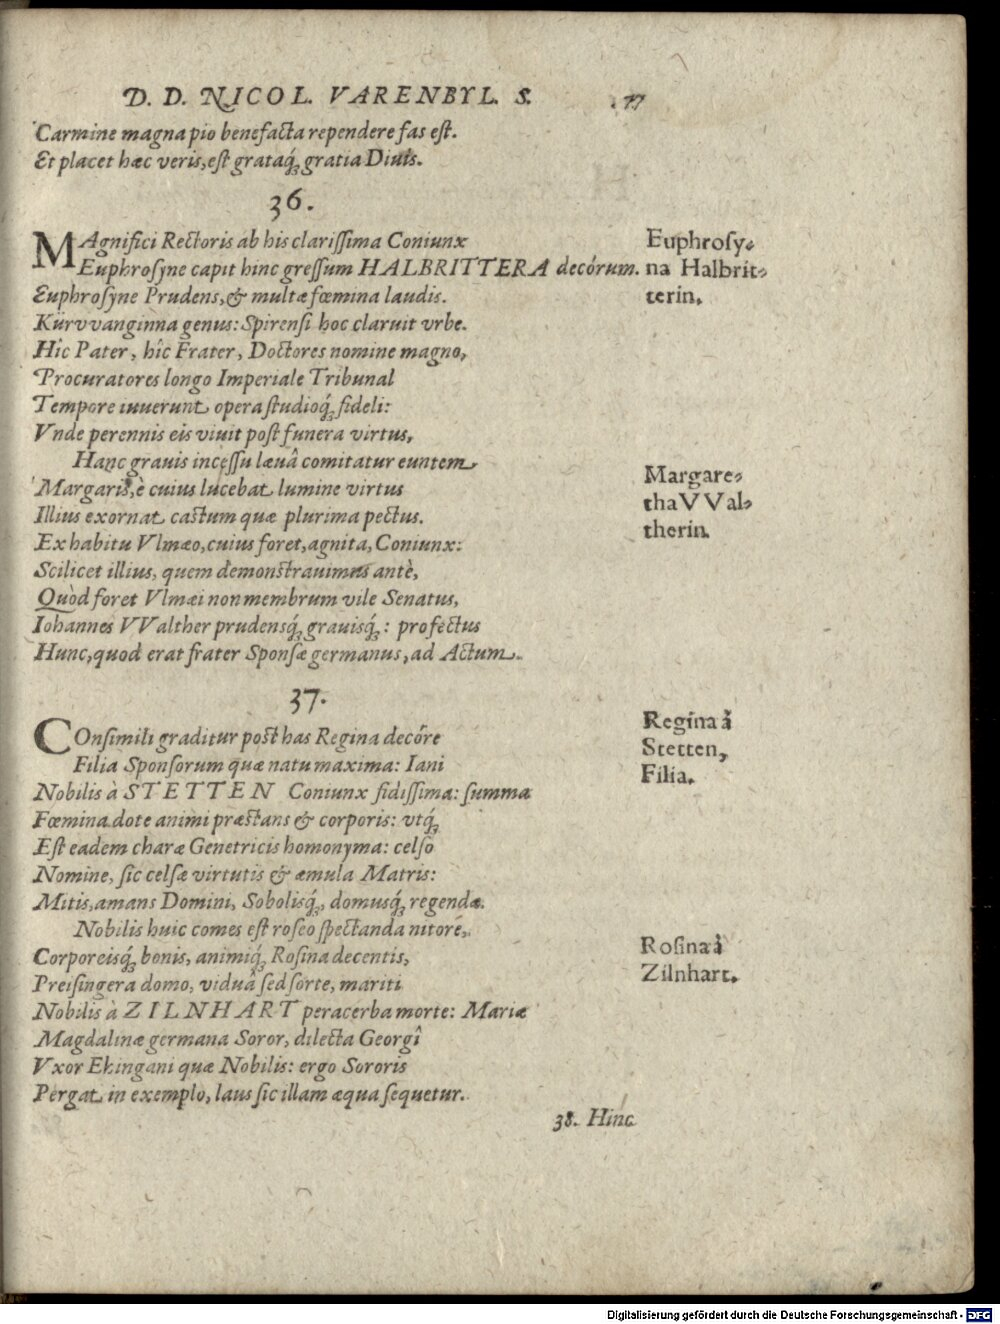 D. D. NICOL. VARENBYL. S. 77
Carmine magna pio benefacta rependere fas est.
Et placet hæc veris, est grataq́; gratia Diuis.
36.
MAgnifici Rectoris ab his clarissima Coniunx
Euphrosyne capit hinc gressum HALBRITTERA decórum.
Euphrosyne Prudens, & multæ fœmina laudis.
Kürvvanginna genus: Spirensi hoc claruit vrbe.
Hîc Pater, hîc Frater, Doctores nomine magno,
Procuratores longo Imperiale Tribunal
Tempore iuuerunt opera studioq́; fideli:
Vnde perennis eis viuit post funera virtus,
Euphrosy-
na Halbrit-
terin.
Hanc grauis incessu læuâ comitatur euntem
Margaris, è cuius lucebat lumine virtus
Illius exornat castum quæ plurima pectus.
Ex habitu Vlmæo, cuius foret, agnita, Coniunx:
Scilicet illius, quem demonstrauimus antè,
Quòd foret Vlmæi non membrum vile Senatus,
Iohannes VValther prudensq́; grauisq́;: profectus
Hunc, quod erat frater Sponsæ germanus, ad Actum.
Margare-
tha VVal-
therin.
37.
COnsimili graditur post has Regina decóre
Filia Sponsorum quæ natu maxima: Iani
Nobilis à STETTEN Coniunx fidissima: summa
Fœmina dote animi præstans & corporis: vtq́;
Est eadem charæ Genetricis homonyma: celso
Nomine, sic celsæ virtutis & æmula Matris:
Mitis, amans Domini, Sobolisq́;, domusq́; regendæ.
Regina à
Stetten,
Filia.
Nobilis huic comes est roseo spectanda nitóre,
Corporeisq́; bonis, animiq́; Rosina decentis,
Preisingera domo, viduâ sed sorte, mariti
Nobilis à ZILNHART peracerba morte: Mariæ
Magdalinæ germana Soror, dilecta Georgî
Vxor Ekingani quæ Nobilis: ergo Sororis
Pergat in exemplo, laus sic illam æqua sequetur.
Rosina à
Zilnhart.
38. Hinc
Digitalisierung gefördert durch die Deutsche Forschungsgemeinschaft - DFG